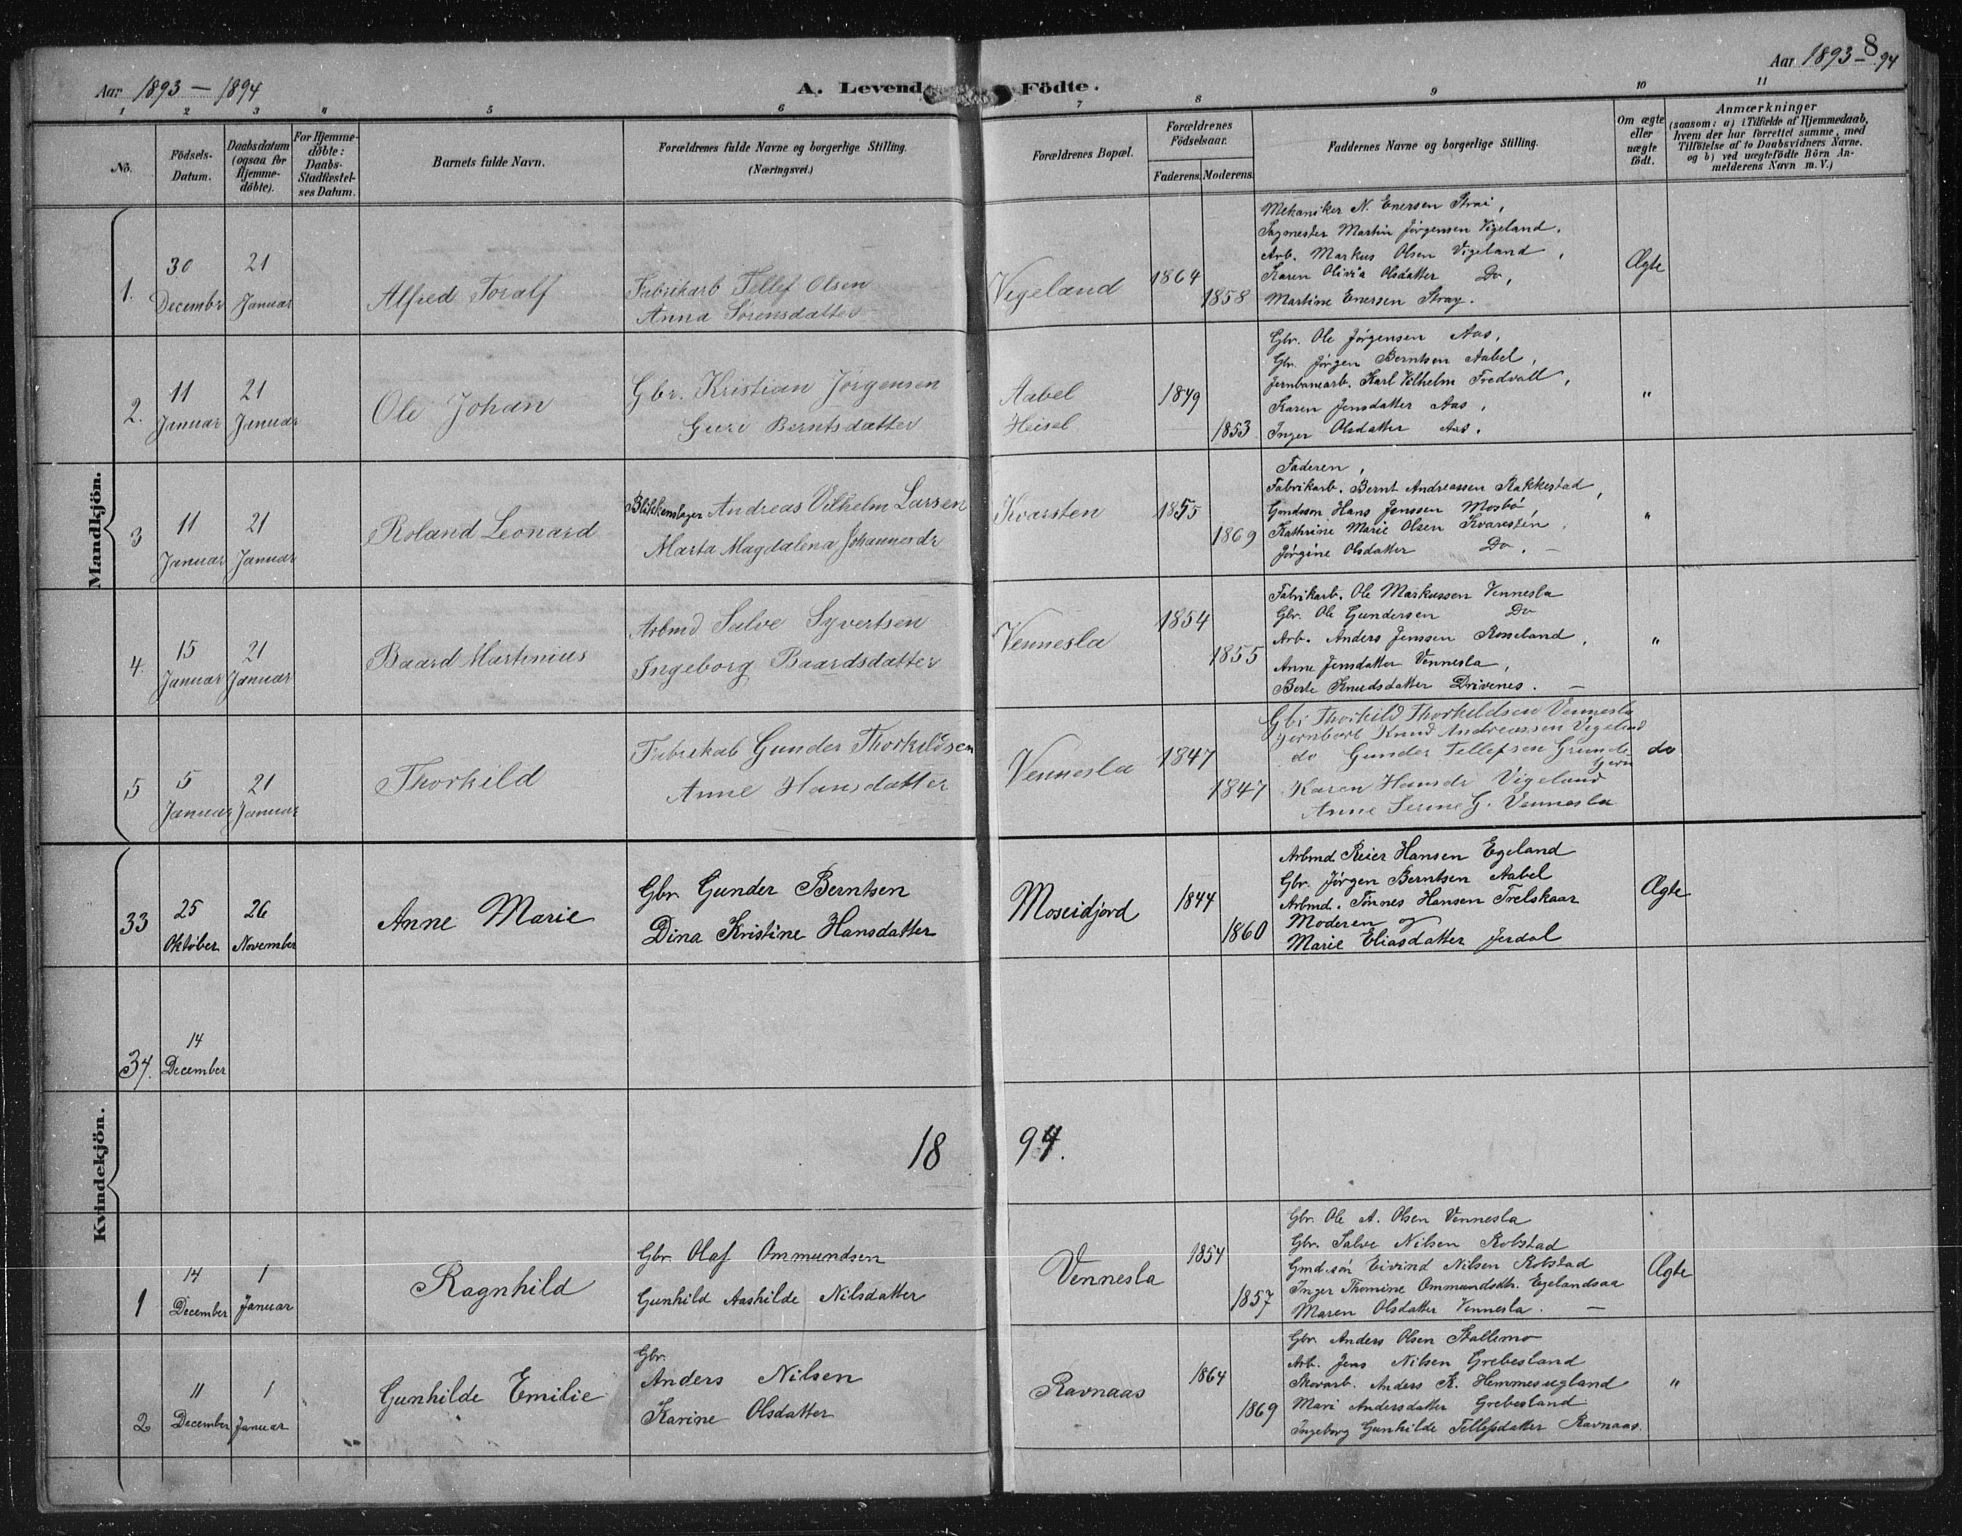 Aar 1893 – 1894
A. Levende Födte.
Aar 1893 – 94
8
1 2 3 4 5 6 7 8 9 10 11
No.
Födsels-Datum.
Daabsdatum (ogsaa for Hjemmedöbte).
For Hjemmedöbte: Daabs-Stadfæstelses Datum.
Barnets fulde Navn.
Forældrenes fulde Navne og borgerlige Stilling. (Næringsvei.)
Forældrenes Bopæl.
Forældrenes Födselsaar.
Faderens. Moderens.
Faddernes Navne og borgerlige Stilling.
Om ægte eller uægte födt.
Anmærkninger
(saasom: a) i Tilfælde af Hjemmedaab, hvem der har forrettet samme, med Tilföielse af to Daabsvidners Navne. og b) ved uægtefödte Börn Anmelderens Navn m. V.)
Mandkjön.
1.
30 Decembr
21 Januar
Alfred Toralf
Fabrikarb Tellef Olsen
Anna Sörensdatter
Vigeland
1864
1858
Mekaniker N. Enersen Strai,
Sagmester Martin Jørgensen Vigeland.
Arb. Markus Olsen Vigeland,
Karen Olivia Olsdatter Do,
Martine Enersen Stray.
Ægte
2.
11 Januar
21 Januar
Ole Johan
Gbr. Kristian Jørgensen
Guri Berntsdatter
Aabel
Heisel
1849
1853
Gbr. Ole Jørgensen Aas,
Gbr Jørgen Berntsen Aabel,
Jernbanearb. Karl Vilhelm Fredvall,
Karen Jensdatter Aas,
Inger Olsdatter Aas.
"
3
11 Januar
21 Januar
Roland Leonard
Blikkenslager Andreas Vilhelm Larsen
Marta Magdalena Johannesdr
Kvarsten
1855
1869
Faderen,
Fabrikarb. Bernt Andreassen Rakkestad,
Gmdssön Hans Jenssen Mosbø,
Kathrine Marie Olsen Kvaresten,
Jørgine Olsdatter Do. –
"
4.
15 Januar
21 Januar
Baard Martinius
Arbmd Salve Syvertsen
Ingeborg Baardsdatter
Vennesla
1854
1855
Fabrikarb. Ole Markussen Vennesla
Gbr. Ole Gundersen Do
Arb. Anders Jenssen Rosseland,
Anne Jensdatter Vennesla,
Berte Knudsdatter Drivenes. –
"
5
5 Januar
21 Januar
Thorkild
Fabrikab Gunder Thorkildsen
Anne Hansdatter
Vennesla
1847
1847
Gbr Thorkild Thorkildsen Vennesla
Jernbarb Knud Andreassen Vigeland
do Gunder Tellefsen
Karen Hansdr Vigeland
Anne Serine G. Vennesla
do
Kvindekjön.
33
25 Oktober
26 November
Anne Marie
Gbr. Gunder Berntsen
Dina Kristine Hansdatter
Moseidjord
1844
1860
Arbmd. Reier Hansen Egeland
Gbr. Jørgen Berntsen Aabel
Arbmd. Tönnes Hansen Trelskaar
Moderen og
Marie Eliasdatter Jerdal
Ægte
34.
14 December
18 94.
1
14 December
1 Januar
Ragnhild
Gbr Olaf Ommundsen
Gunhild Aashilde Nilsdatter
Vennesla
1854
1857
Gbr. Ole A. Olsen Vennesla
Gbr. Salve Nilsen Robstad
Gmd.søn Eivind Nilsen Robstad
Inger Thomine Ommundsdtr. Egelandsaa
Maren Olsdatter Vennesla. –
Ægte
2
11 December
1 Januar
Gunhilde Emilie
Gbr.
Anders Nilsen
Karine Olsdatter
Ravnaas
1864
1869
Gbr Anders Olsen Stallemo
Arb. Jens Nilsen Grebesland
Skovarb. Anders K. Hemmesugland
Mari Andersdatter Grebesland
Ingeborg Gunhilde Tellefsdatter Ravnaas.
"